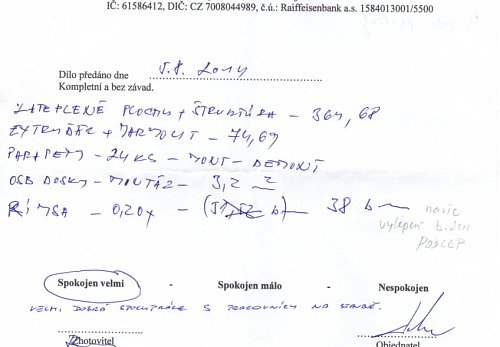 IČ: 61586412, DIČ: CZ 7008044989, č.ú.: Raiffeisenbank a.s. 1584013001/5500
Dílo předáno dne 5.8. 2014
Kompletní a bez závad.
ZATEPLENÉ PLOCHY + ŠTRUKTÚRA - 364,68
EXTRUDÁK + MARMOLIT - 74,69
PARAPETY - 24 KS - MONT - DEMONT
OSB DOSKY - MONTÁŽ - 3,2 m2
ŘÍMSA - 0,20x - 38 bm navíc
vylepení b.dem
PODCEP
Spokojen velmi - Spokojen málo - Nespokojen
VELMI DOBRÁ SPOLUPRÁCE S PRACOVNÍKY NA STAVBĚ.
Zhotovitel Objednatel